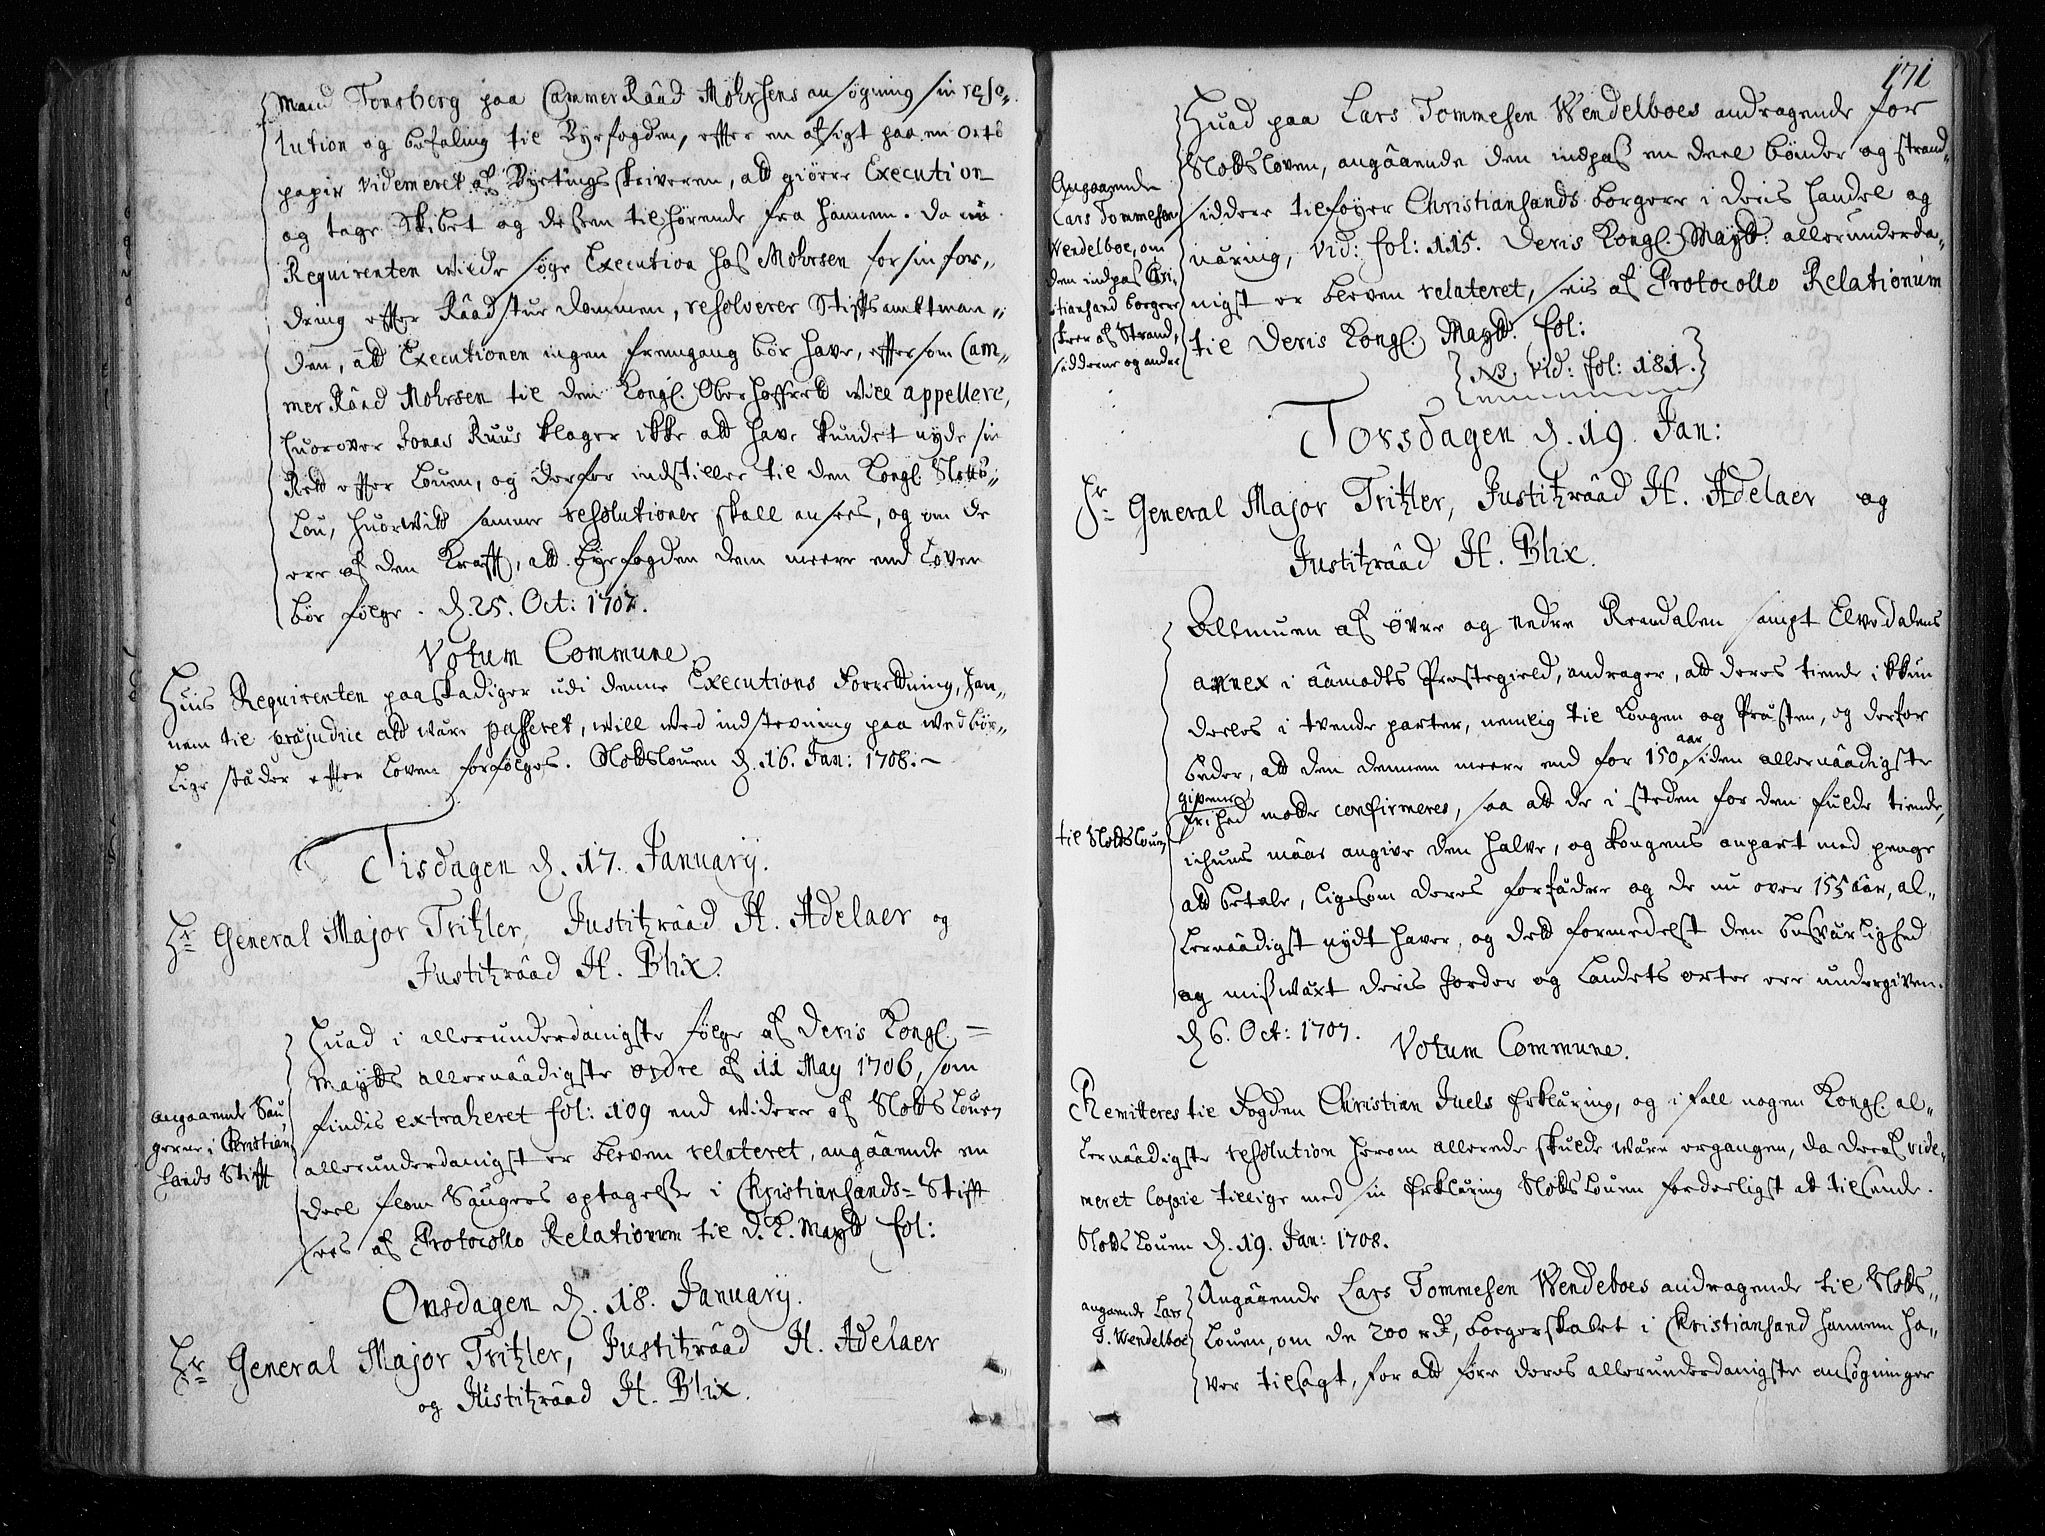 Mand Tonsberg paa CammerRååd Mohrsens ansøgning sin reso-
lution og befaling til Byefogden, effter en afsigt paa en Orts
papir videmeret af Byetingsskriveren, att giørre Execution
og tage Skibet og dessen tilhørende fra hannem. da nu
Requirenten wilde søge Execution hos Mohrsen for sin for-
dring effter Råådstue dommen, resolverer Stifftsambtman-
den, att Executionen ingen fremgang bør have, effter som Cam-
mer Rååd Mohrsen til den Kongl. Oberhoffrett will appellere,
huorover Jonas Ruus klager ikke att have kundet nyde sin
Rett effter Louen, og derfor indstiller til den Kongl. Slotts-
Lou, huorvitt samme resolutioner skall ansees, og om de
ere af den Krafft, att byefogden dem meere end Loven
bør følge. d. 25. Oct: 1707.
Votum Commune
Huis Requirenten paaskadiger udi denne Executions Forrettning, han-
nem til præjudice att være passeret, will ved indstevning paa vedbør-
lige stæder effter Loven forfølges. Slottslouen d. 16. Jan: 1708.
Tisdagen d. 17. January.
Hr General Major Tritzler, Justitzrååd H. Adelaer og
Justitzrååd H. Blix.
angaaende Sau
gerne i Christian
sands Stifft
Huad i allerunderdanigste følge af Deris Kongl.
Maytts allernåådigste ordre af 11 May 1706, som
findis extraheret fol: 109 end widere af Slotts Louen
allerunderdanigst er bleven relateret, angåaende en
deel flom Saugers optagelse i Christiansands Stifft
sees af Protocollo Relationum til D. K. Maytt fol:
Onsdagen d. 18. January.
Hr General Major Tritzler, Justitzrååd H. Adelaer
og Justitzrååd H. Blix.
171
Angaaende
Lars Tommesen
Wendelboe, om
den indpas Chri-
stiansand borgere
skeer af Strand-
sidderne og andre
Huad paa Lars Tommesen Wendelboes andragende for
Slottsloven, angåaende den indpas en deel bønder og strand-
siddere tilføyer Christiansands borgere i deris handel og
næring, vid: fol: 115. Deris Kongl. Maytt: allerunderda-
nigst er bleven relateret, seis af Protocollo Relationum
til Deris Kongl. Maytt. fol:
NB. vid: fol: 181.
Torsdagen d. 19. Jan:
Hr General Major Tritzler, Justitzrååd H. Adelaer og
Justitzrååd H. Blix.
til Slottslouen
Allmuen af øvre og nedre Rendalen sampt Elvedalens
annex i åamodts Prestegield, andrager, att deres tiende ikkun
deeles i tvende parter, nemlig til Kongen og Præsten, og derfor
beder, att den dennem meere end for 150 aar siden allernåådigste
givene
frihed motte confirmeres, saa att de i steden for den fulde tiende,
ichuns måae angive den halve, og Kongens anpart med penge
att betale, ligesom deres forfædre og de nu over 155 åår, al-
lernåådigst nydt haver, og dett formedelst den besværlighed
og misvæxt deris Jorder og Landets orter ere undergiven.
d 6. Oct: 1707.
Votum Commune.
Remitteres til Fogden Christian Juels Erklæring, og ifall nogen Kongl. al-
lernåådigste resolution herom allerede skulde være ergangen, da deraf vide-
meret Copie tillige med sin Erklæring Slotts Louen forderligst at tilsende.
Slotts Louen d. 19. Jan: 1708.
angaaende Lars
T. Wendelboe
Angåaende Lars Tommesen Wendeboes andragende til Slotts-
Louen, om de 200 rd, borgerskabet i Christiansand hannem ha-
ver tilsagt, for att føre deres allerunderdanigste ansøgninger